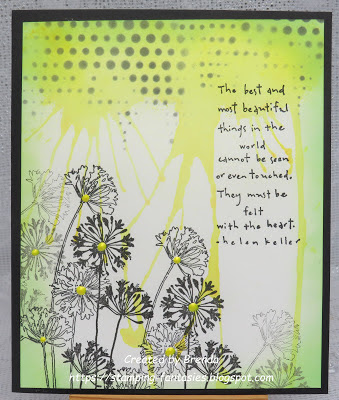 The best and
most beautiful
things in the
world
cannot be seen
or even touched.
They must be
felt
with the heart.
-helen keller
Created by Brenda
https://stamping-fantasies.blogspot.com